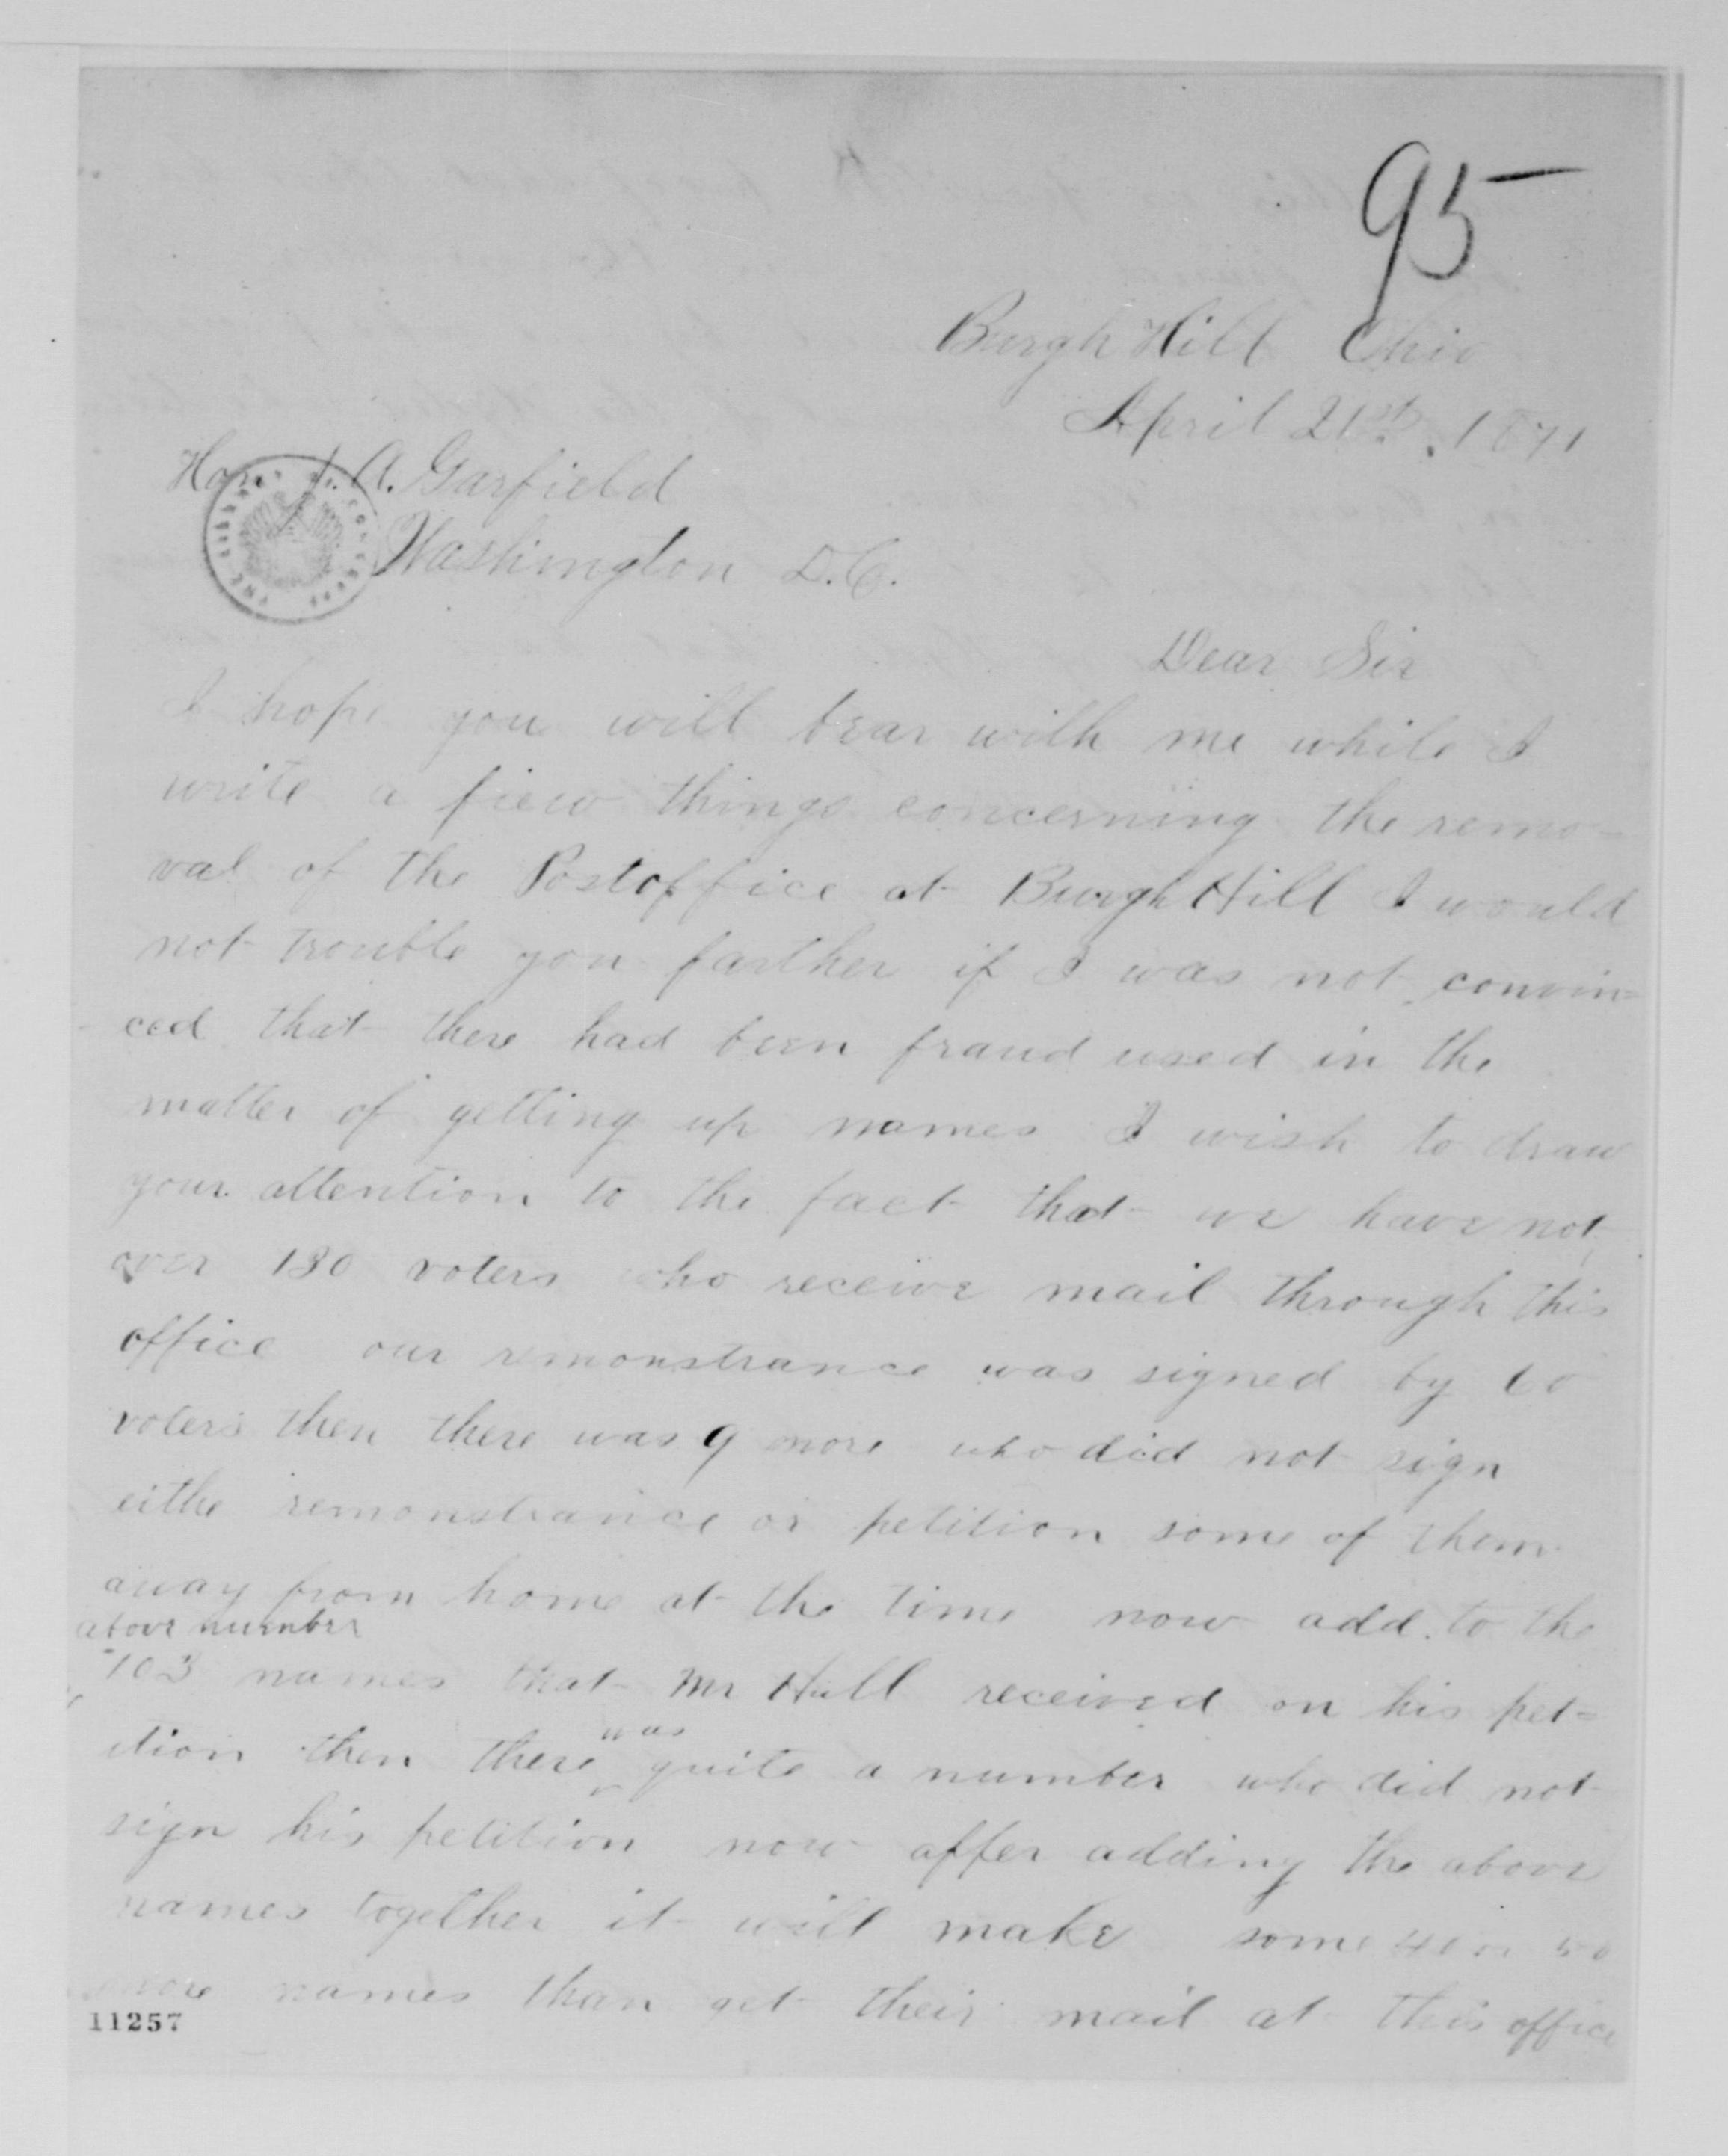 95
Burgh Hill Ohio
April 21st. 1871
Hon. J. A. Garfield
Washington D.C.
Dear Sir
I hope you will bear with me while I
write a fiew things concerning the remo=
val of the Postoffice at Burgh Hill I would
not trouble you farther if I was not convin=
ced that there had been fraud used in the
matter of getting up names I wish to draw
your attention to the fact that we have not
over 130 voters who receive mail through this
office our remonstrance was signed by 60
voters then there was 9 more who did not sign
eithe remonstrance or petition some of them
away from home at the time now add to the
above number
103 names that Mr Hull received on his pet=
ition then there was quite a number who did not
sign his petition now affer adding the above
names together it will make some 40 or 50
more names than get their mail at this office
11257